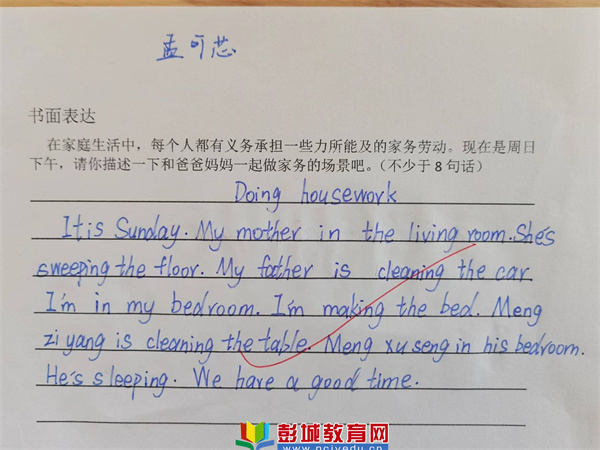 孟可芯
书面表达
在家庭生活中，每个人都有义务承担一些力所能及的家务劳动。现在是周日
下午，请你描述一下和爸爸妈妈一起做家务的场景吧。（不少于 8 句话）
Doing housework
It is Sunday. My mother in the living room. She's
sweeping the floor. My father is cleaning the car.
I'm in my bedroom. I'm making the bed. Meng
zi yang is cleaning the table. Meng xu seng in his bedroom.
He's sleeping. We have a good time.
彭城教育网
www.pcjyedu.cn